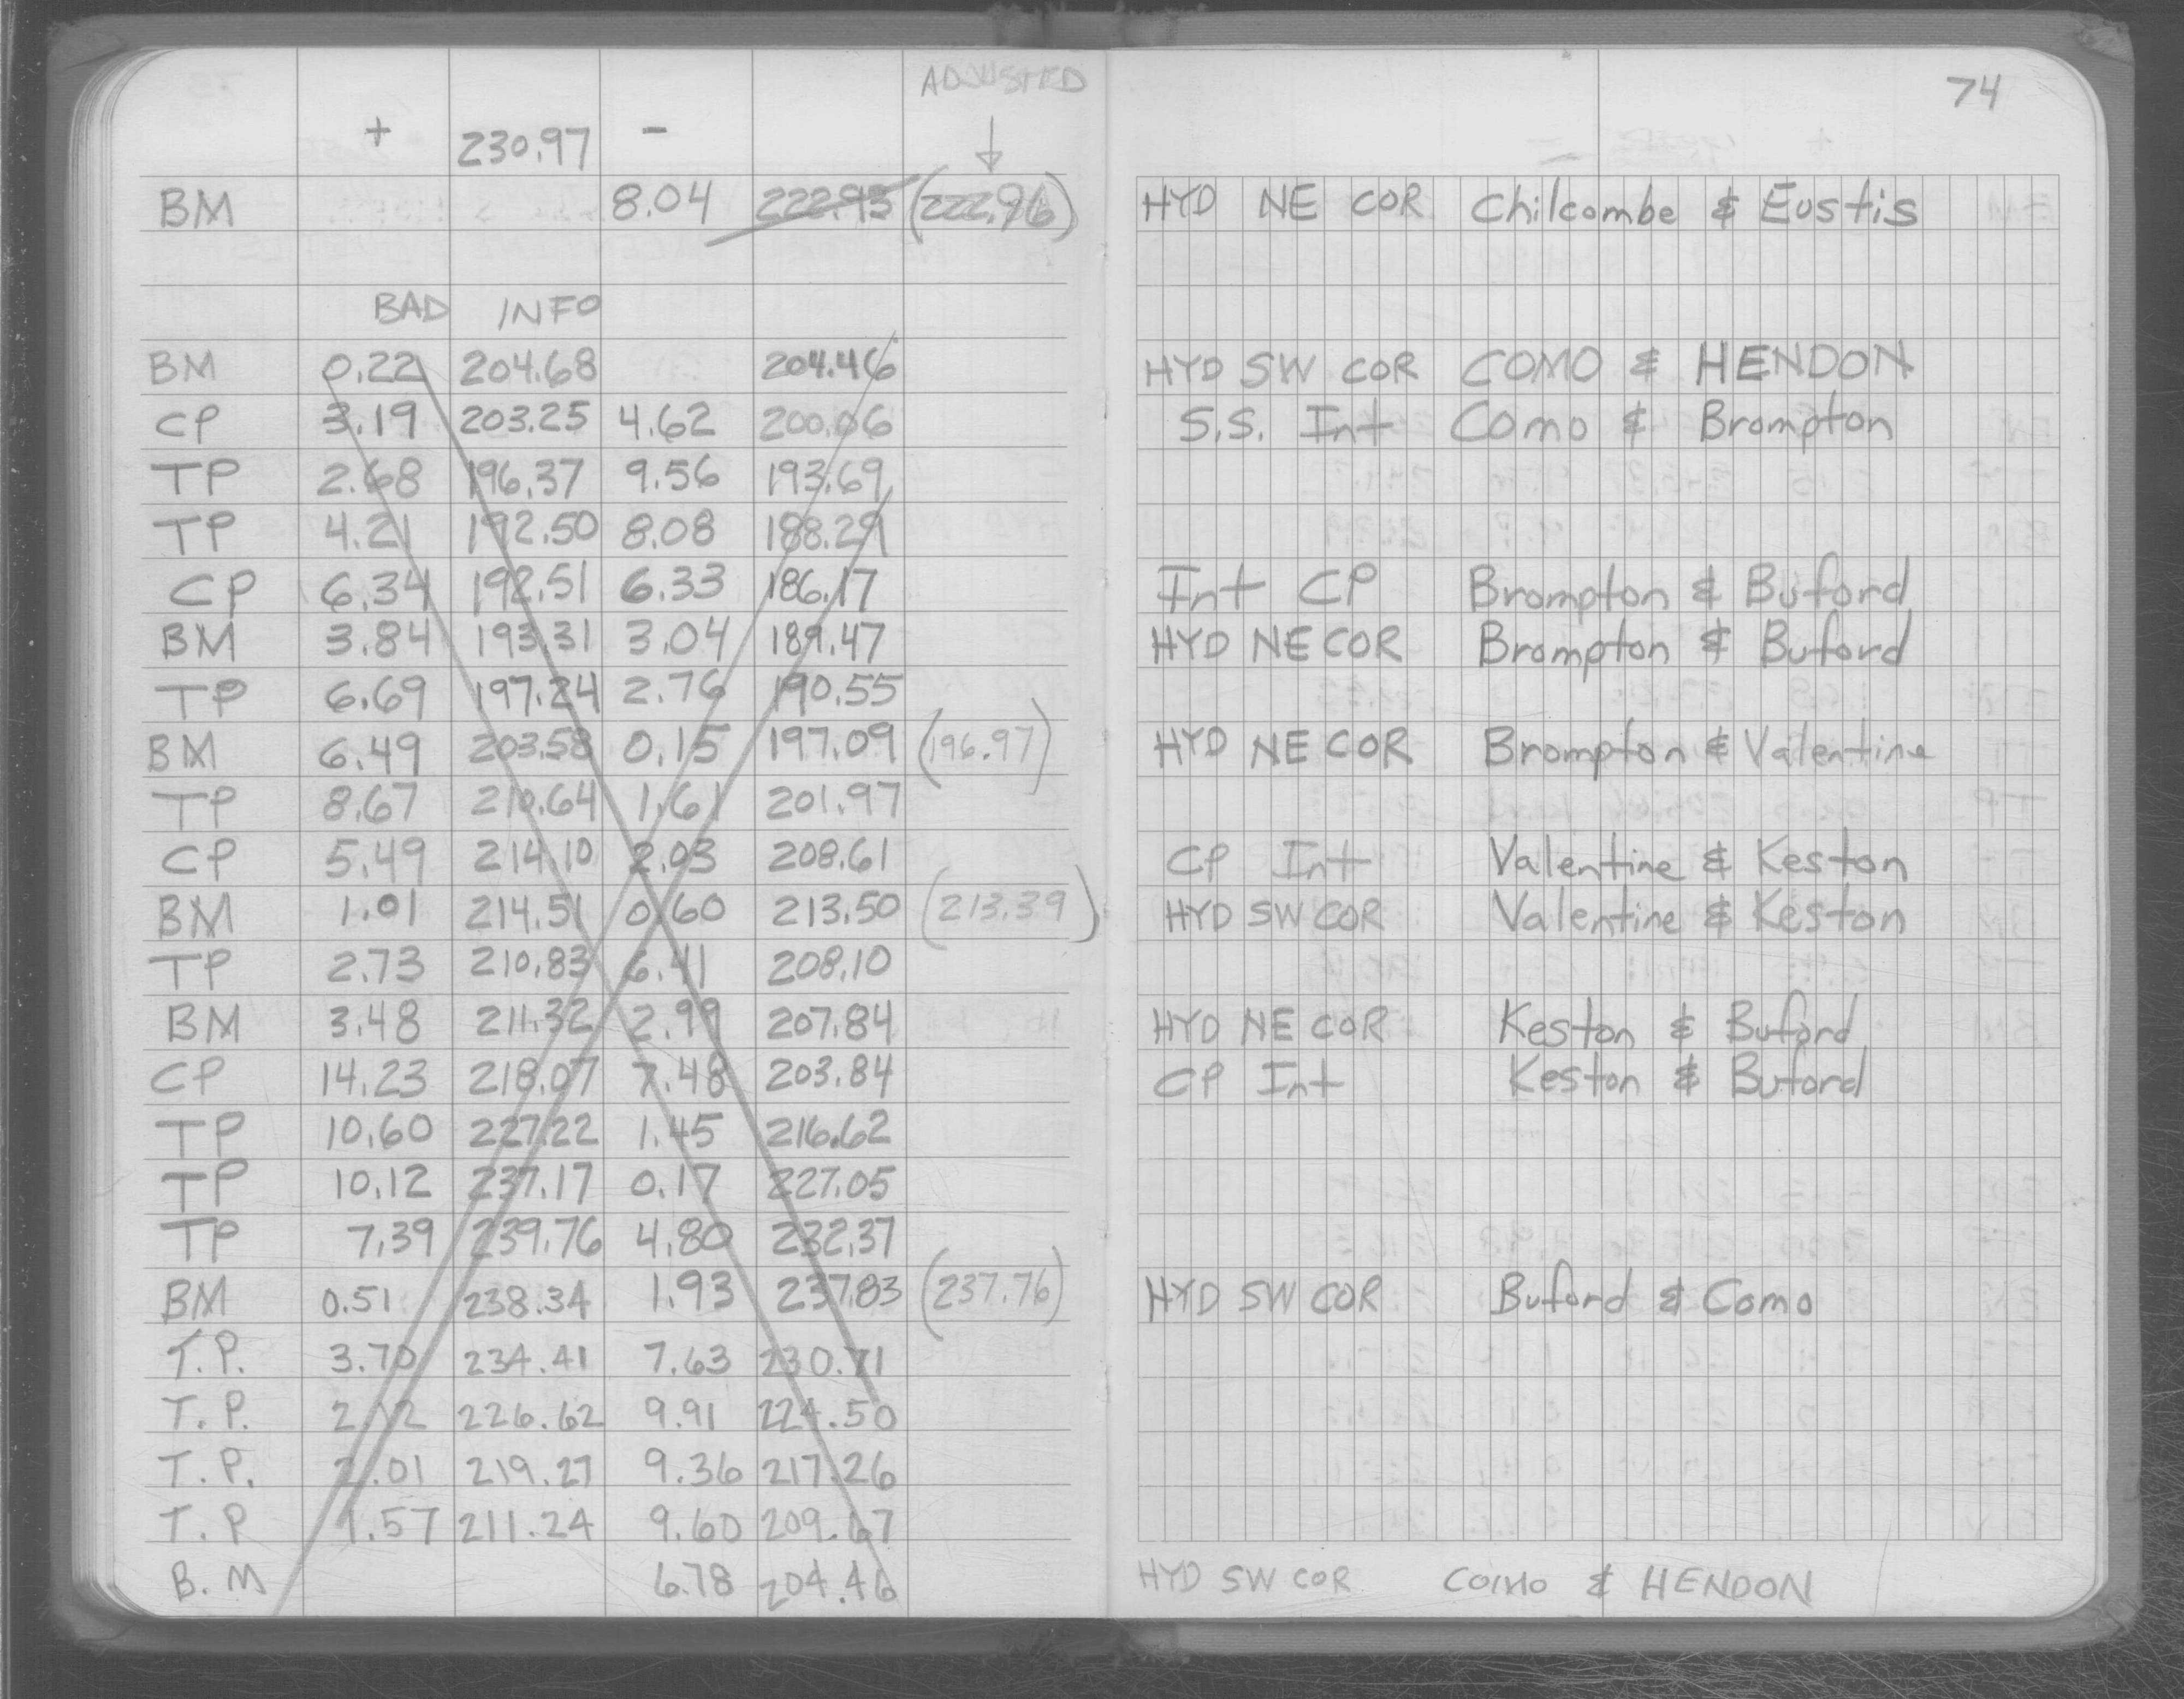 ADJUSTED
74
+ 230.97 - ↓
BM 8.04 222.93 (222.96) HYD NE COR Chilcombe & Eustis
BAD INFO
BM 0.22 204.68 204.46 HYD SW COR COMO & HENDON
CP 3.19 203.25 4.62 200.06 S.S. Int Como & Brompton
TP 2.68 196.37 9.56 193.69
TP 4.21 192.50 8.08 188.29
CP 6.34 192.51 6.33 186.17 Int CP Brompton & Buford
BM 3.84 193.31 3.04 189.47 HYD NE COR Brompton & Buford
TP 6.69 197.24 2.76 190.55
BM 6.49 203.58 0.15 197.09 (196.97) HYD NE COR Brompton & Valentine
TP 8.67 210.64 1.61 201.97
CP 5.49 214.10 2.03 208.61 CP Int Valentine & Keston
BM 1.01 214.51 0.60 213.50 (213.39) HYD SW COR Valentine & Keston
TP 2.73 210.83 6.41 208.10
BM 3.48 211.32 2.99 207.84 HYD NE COR Keston & Buford
CP 14.23 218.07 7.48 203.84 CP Int Keston & Buford
TP 10.60 227.22 1.45 216.62
TP 10.12 237.17 0.17 227.05
TP 7.39 239.76 4.80 232.37
BM 0.51 238.34 1.93 237.83 (237.76) HYD SW COR Buford & Como
T.P. 3.70 234.41 7.63 230.71
T.P. 2.12 226.62 9.91 224.50
T.P. 2.01 219.27 9.36 217.26
T.P 1.57 211.24 9.60 209.67
B.M 6.78 204.46 HYD SW COR COMO & HENDON